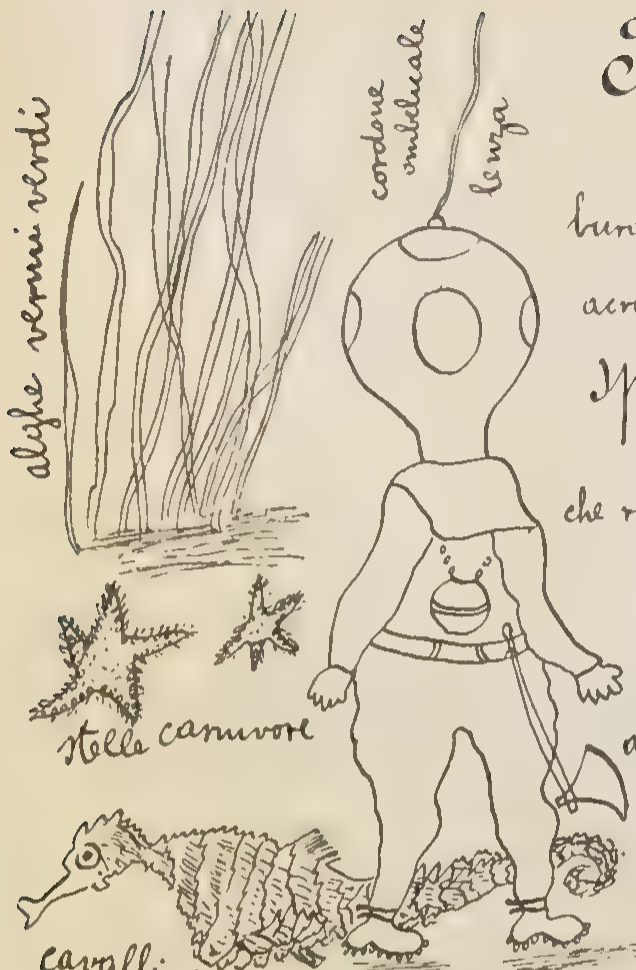 alghe vermi verdi
cordone
ombelicale
lenza
che
stelle carnivore
cavalli